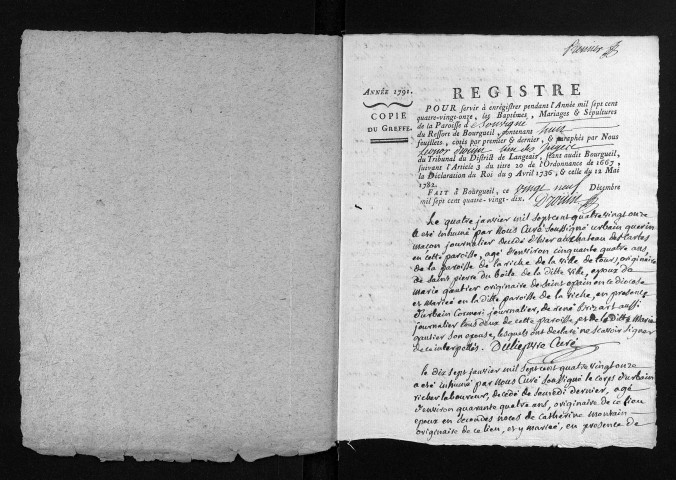 Premier
ANNÉE 1791.
COPIE
DU GREFFE.
REGISTRE
POUR servir à enrégistrer pendant l'Année mil sept cent
quatre-vingt-onze, les Baptêmes, Mariages & Sépultures
de la Paroisse d e Souvigné
du Ressort de Bourgueil, contenans huit
feuillets, cotés par premier & dernier, & paraphés par Nous
l'un des Juges
du Tribunal du District de Langeais, séant audit Bourgueil,
suivant l'Article 3 du titre 20 de l'Ordonnance de 1667,
la Déclaration du Roi du 9 Avril 1736, & celle du 12 Mai
1782.
FAIT à Bourgueil, ce vingt neuf Décembre
mil sept cent quatre-vingt-dix. Drouin
Le quatre janvier mil sept cent quatre vingt onze
a été inhumé par Nous Curé Soussigné urbain guerin
maçon journalier décédé d'hier au chateau des cartes
en cette paroisse, agé d'environ cinquante quatre ans,
de la paroisse de la riche de la ville de tours, originaire
de saint pierre du boile de la ditte ville, epoux de
marie gautier originaire de saint epain en ce diocese
et marieé en la ditte paroisse de la riche, en presence
d'urbain Cormeri journalier, de rené Brizart aussi
journalier tous deux de cette paroisse, et de la ditte Marie
gautier son epouse, lesquels ont declaré ne scavoir signer
de ce interpellés. curé
le dix sept janvier mil sept cent quatre vingt onze
a eté inhumé par Nous Curé Soussigné le corps d'urbain
richer laboureur, decédé de samedi dernier, agé
d'environ quarante quatre ans, originaire de ce lieu
epoux en secondes noces de catherine
originaire de ce lieu, et y marieé, en presence de